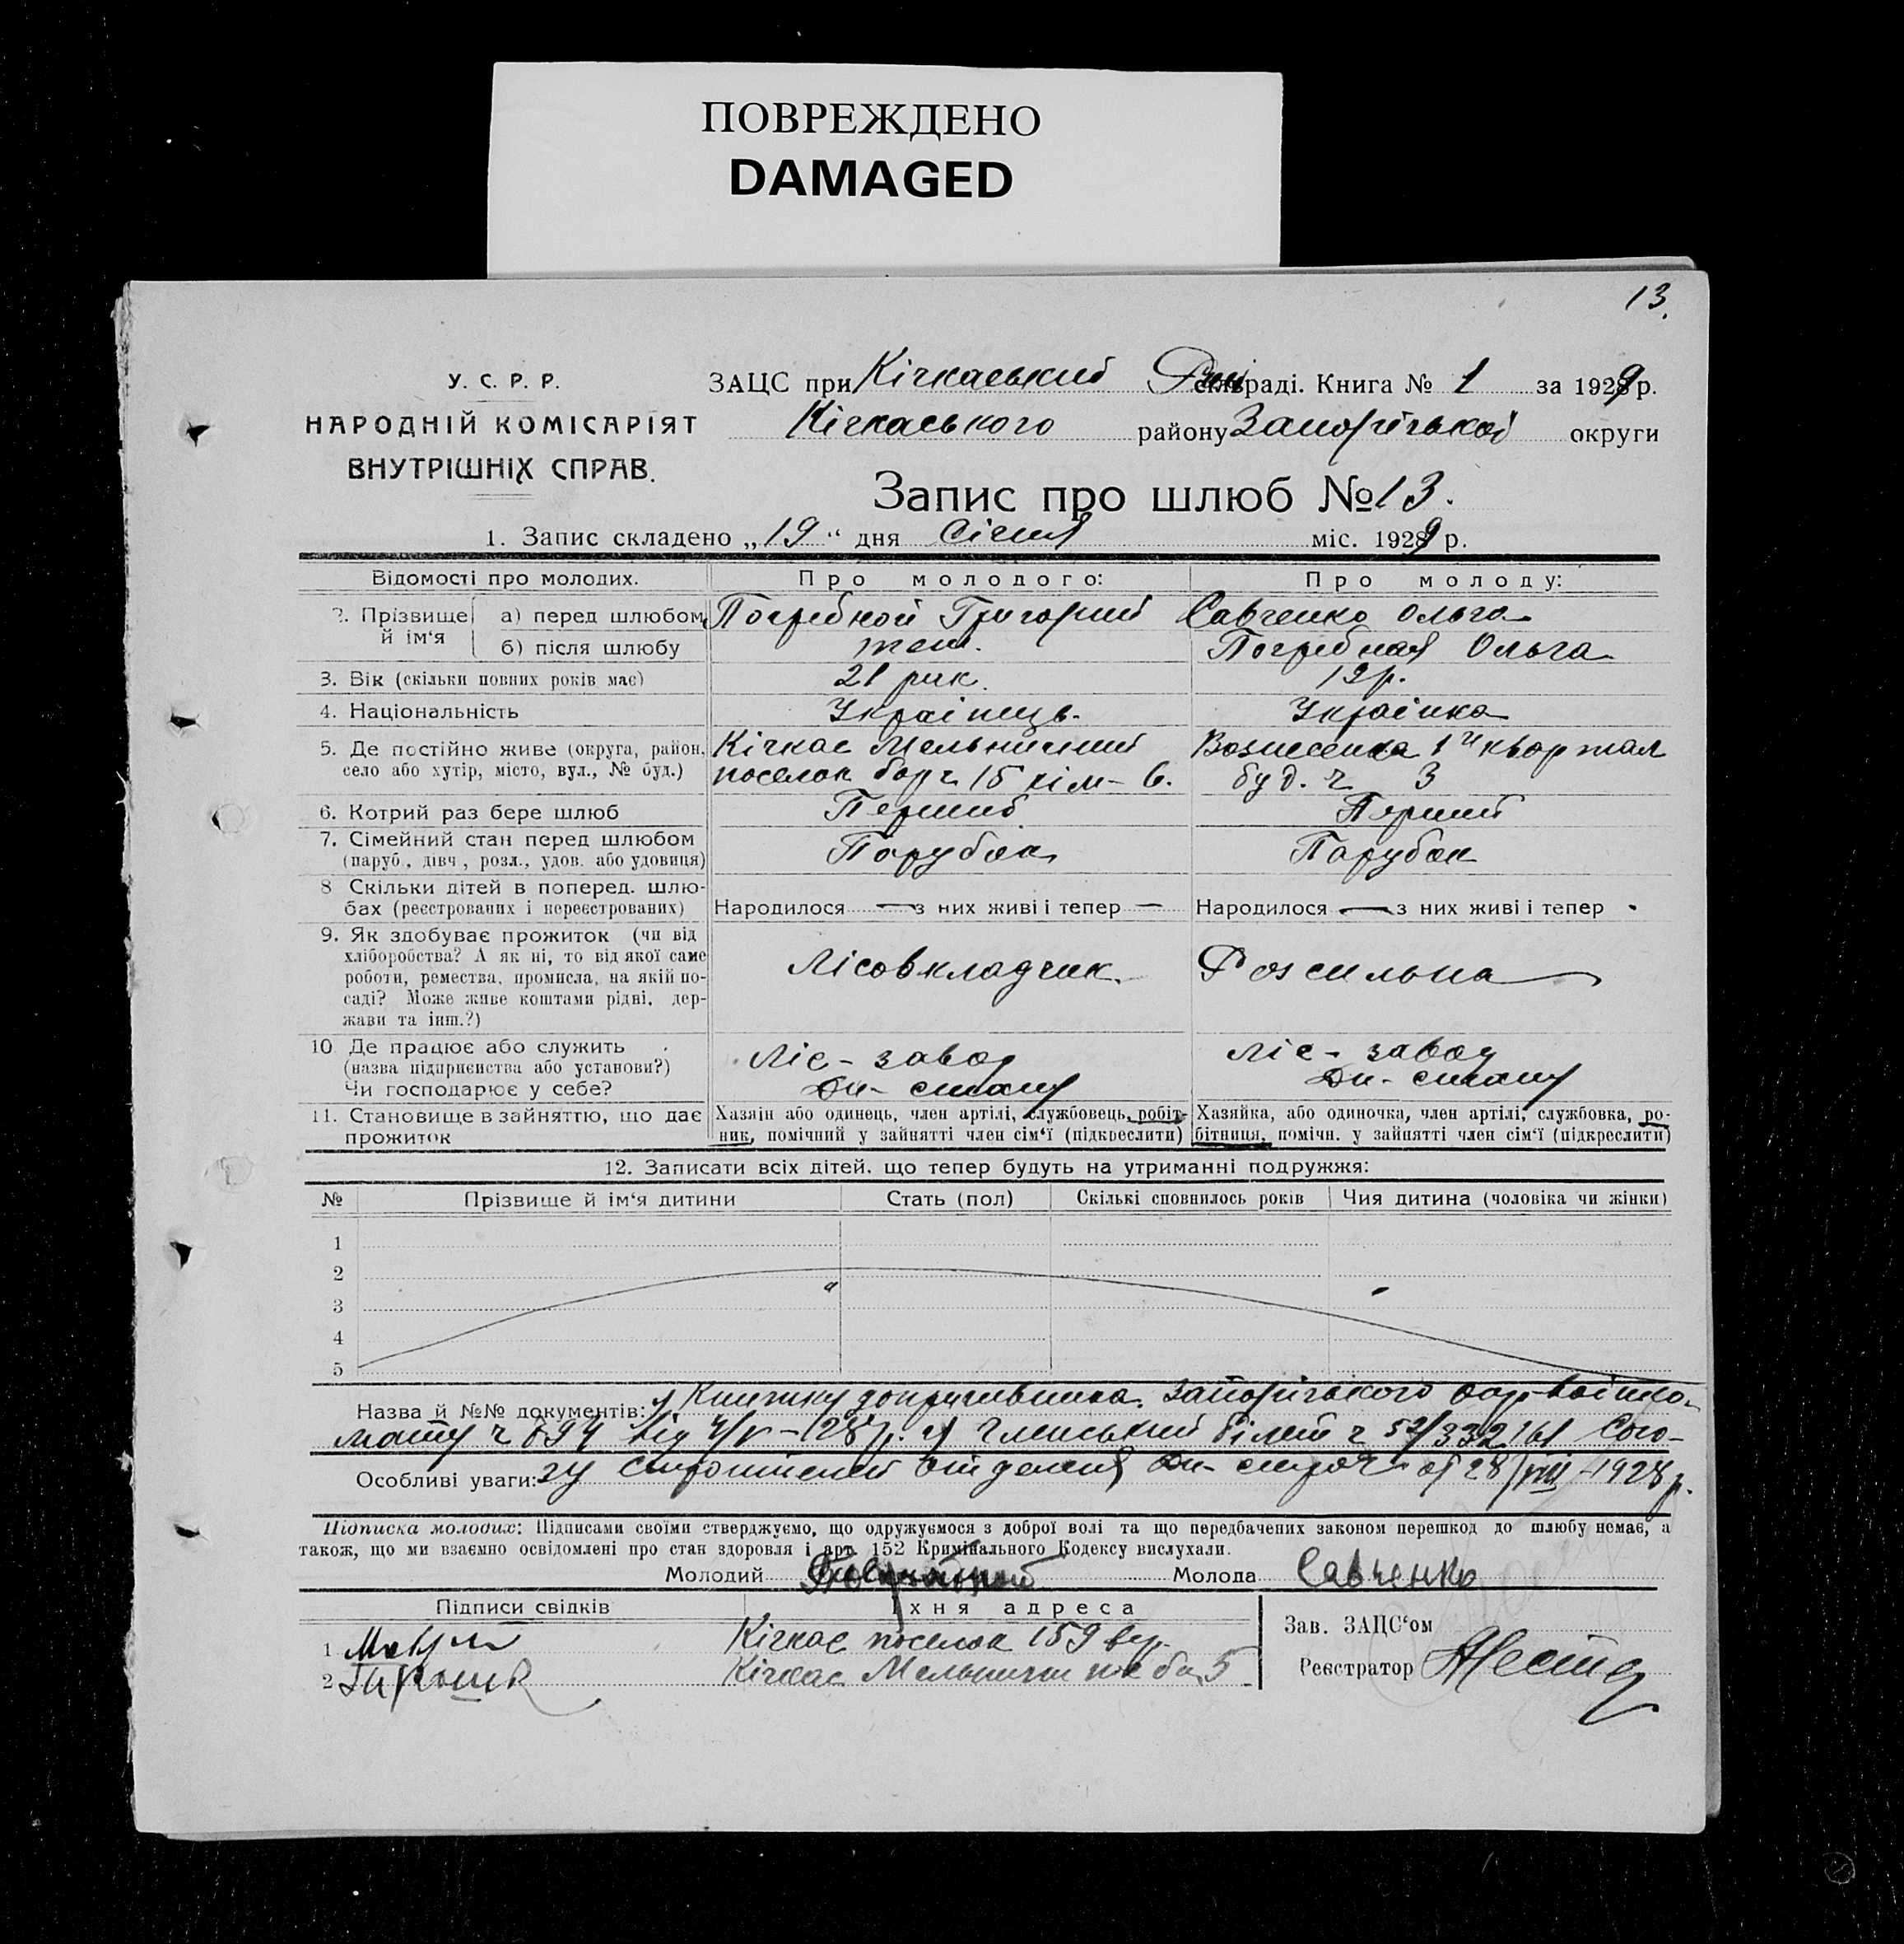 ПОВРЕЖДЕНО
DAMAGED
13.
У. С. Р. Р.
НАРОДНІЙ КОМІСАРІЯТ
ВНУТРІШНІХ СПРАВ.
ЗАЦС при Кічкаський раді. Книга № 1 за 1929 р.
Кічкаського району Запорізькой округи
Запис про шлюб № 13.
1. Запис складено „19“ дня Січня міс. 1929 р.
Відомості про молодих. Про молодого: Про молоду:
2. Прізвище й ім‘я а) перед шлюбом Погребной Григорий Савченко Ольга
б) після шлюбу теш. Погребная Ольга
3. Вік (скільки повних років має) 21 рик. 19 р.
4. Національність Українець. Українка
5. Де постійно живе (округа, район, село або хутір, місто, вул., № буд.) Кічкас Мельничний Вознесенка 1й квартал
поселок бар ч 15 кім – 6. буд. ч 3
6. Котрий раз бере шлюб Перший Перший
7. Сімейний стан перед шлюбом (паруб., дівч., розл., удов. або удовиця) Парубок Парубок
8 Скільки дітей в поперед. шлюбах (реєстрованих і нереєстрованих) Народилося — з них живі і тепер — Народилося — з них живі і тепер
9. Як здобуває прожиток (чи від
хліборобства? А як ні, то від якої саме
роботи, ремества, промисла, на якій по-
саді? Може живе коштами рідні, дер-
жави та інш.?)
Лісовкладчик. Розсильна
10 Де працює або служить
(назва підприємства або установи?)
Чи господарює у себе?
Ліс - завод Ліс - завод
Дн-
Дн-
11. Становище в зайняттю, що дає прожиток
Хазяїн або одинець, член артілі, службовець, робіт-
ник, помічний у зайнятті член сім‘ї (підкреслити)
Хазяйка, або одиночка, член артілі, службовка, ро-
бітниця, помічн. у зайнятті член сім‘ї (підкреслити)
12. Записати всіх дітей, що тепер будуть на утриманні подружжя:
№ Прізвище й ім‘я дитини Стать (пол) Скількі сповнилось років Чия дитина (чоловіка чи жінки)
1
2
3
4
5
Назва й №№ документів: Книжку Запорізького
мату ч 894 від Членський білет ч 52/332161 Сою-
Особливі уваги: зу Дн- 28/VIII-1928 р.
Підписка молодих: Підписами своїми стверджуємо, що одружуємося з доброї волі та що передбачених законом перешкод до шлюбу немає, а
також, що ми взаємно освідомлені про стан здоровля і арт. 152 Кримінального Кодексу вислухали.
Молодий Молода Савченко
Підписи свідків Їхня адреса
1 Кічкас поселок 159
2 Кічкас 5
Зав. ЗАЦС‘ом
Реєстратор